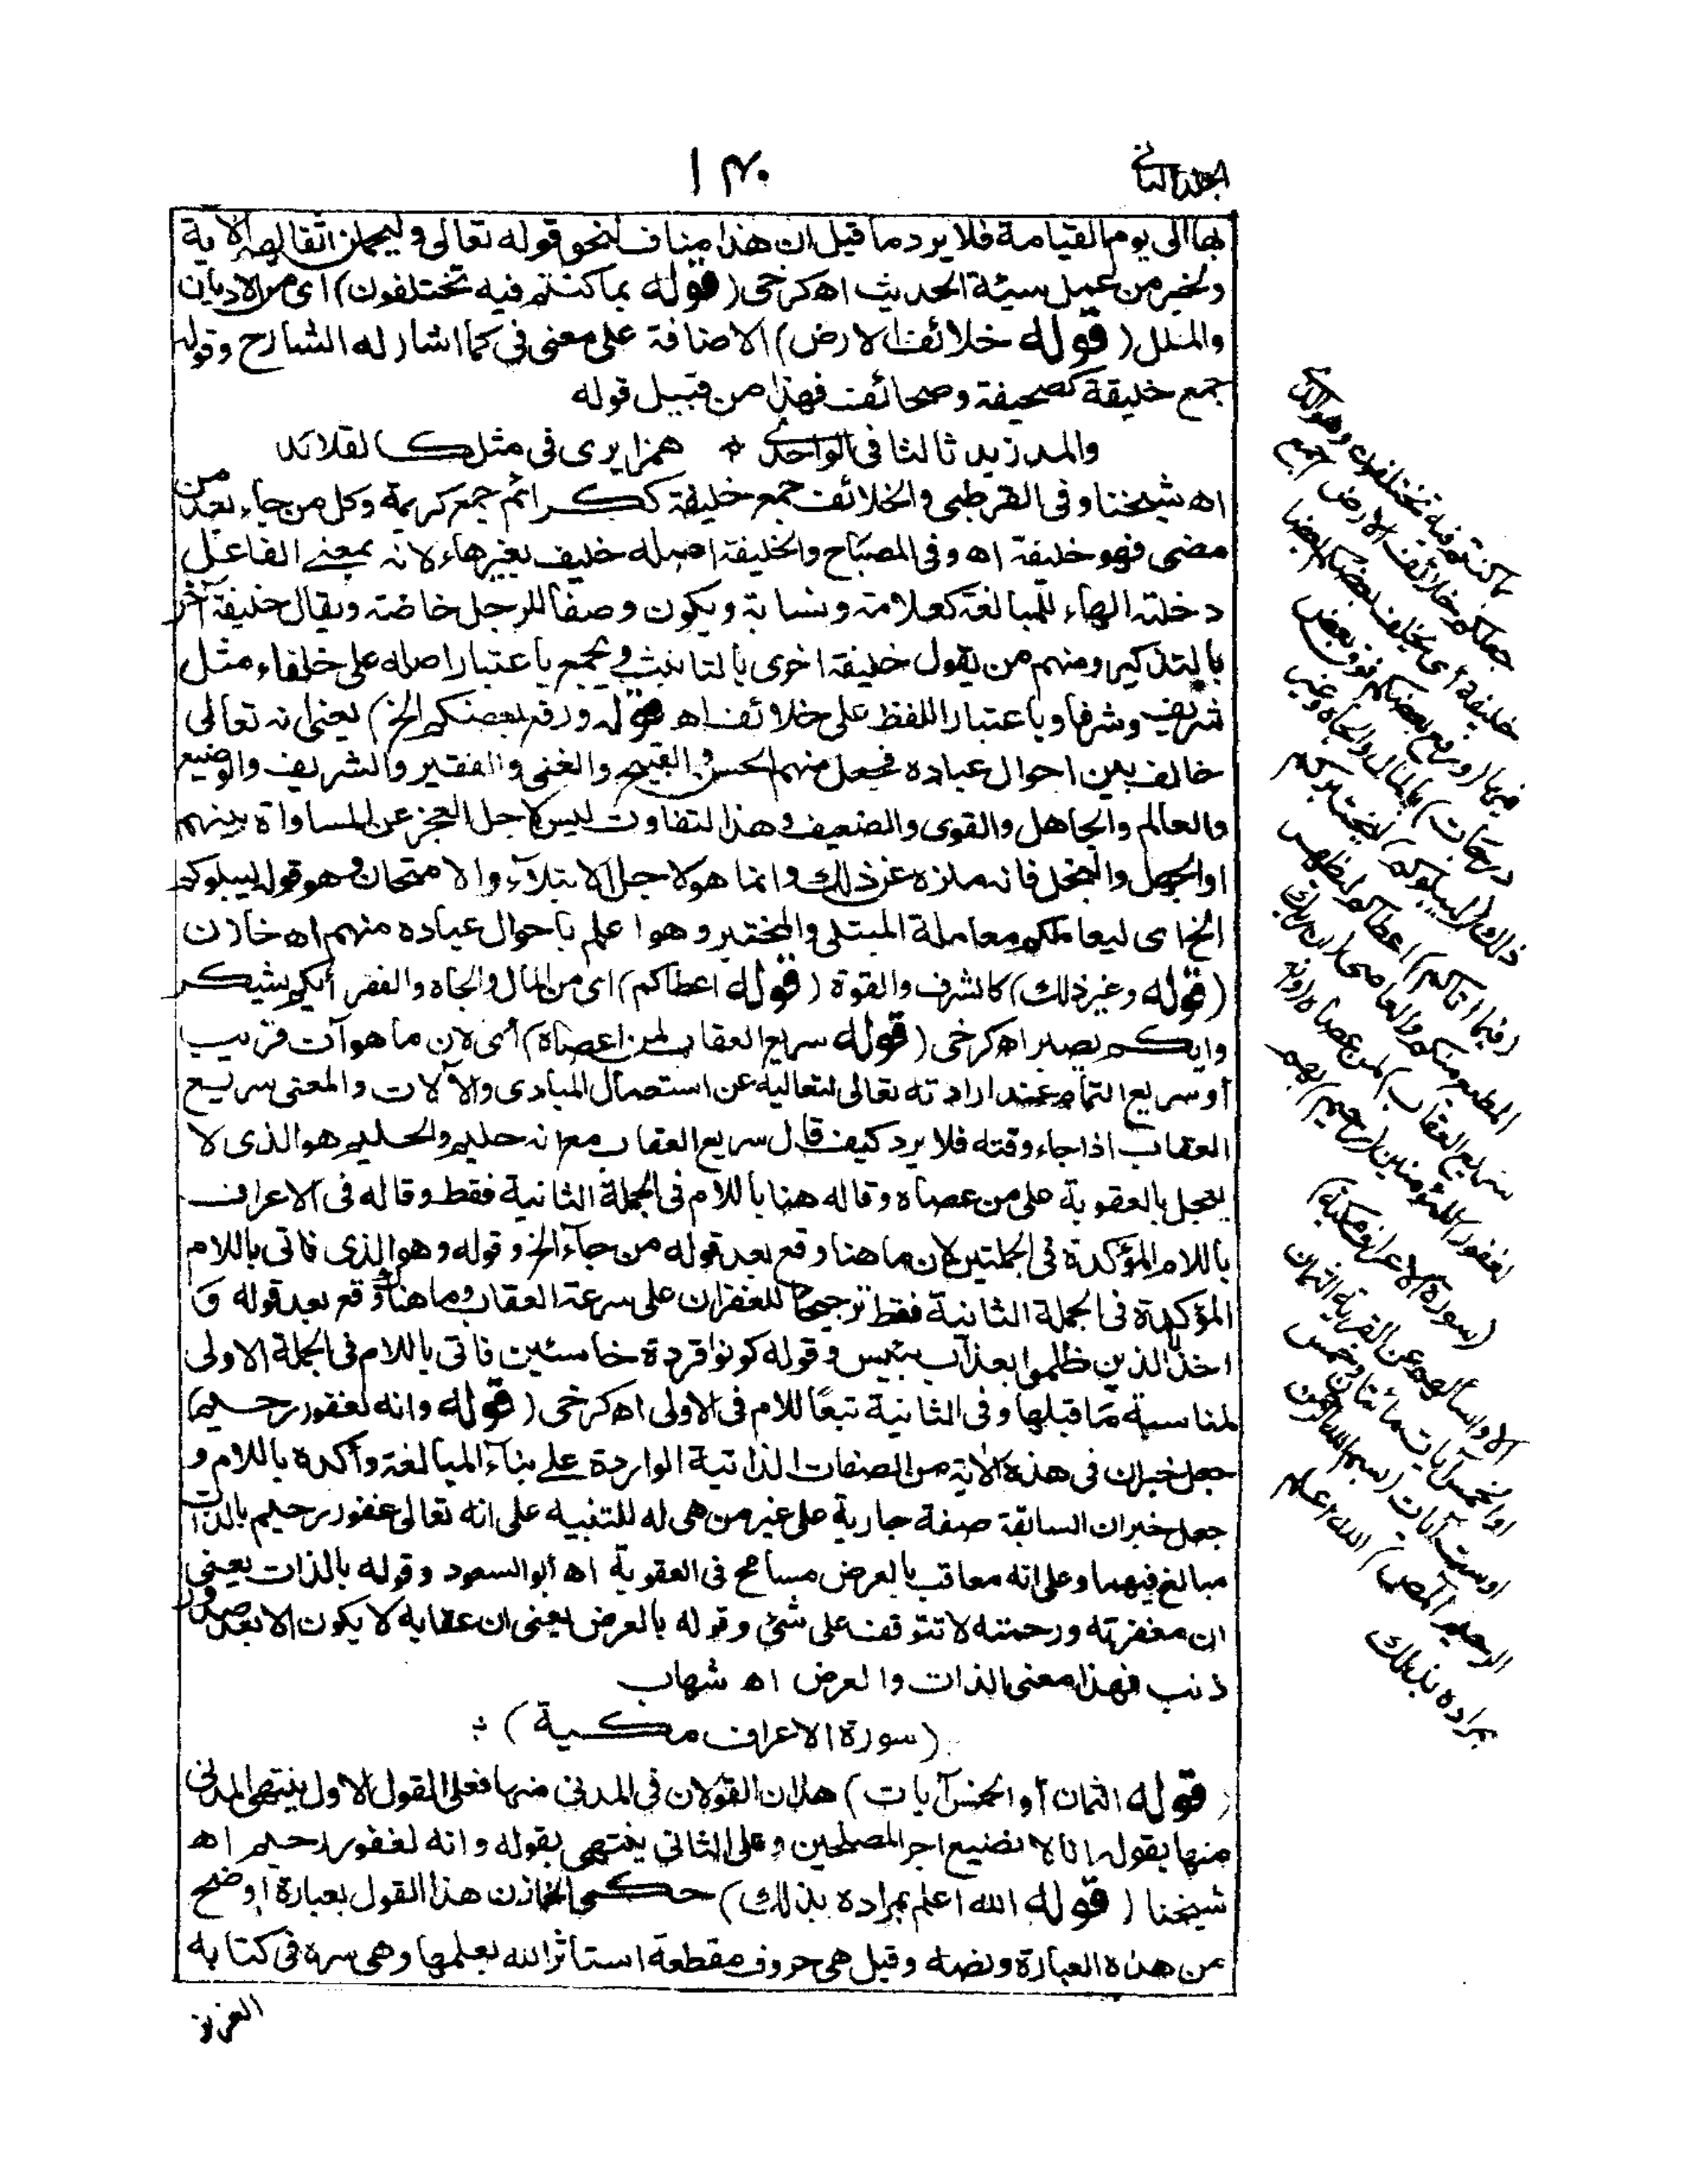 الجلد الثانى
١٣٠
بها الى يوم القيامة فلا يرد ما قيل ان هذا مناف لنحو قوله تعالى وليحملن اثقالهم الاية
ولخبر من عمل سيئة الحديث اه كرخى (قوله بما كنتم فيه تختلفون) اى من الاديان
والملل (قوله خلائف الارض) الاضافة على معنى فى كما اشار له الشارح وقوله
جمع خليفة كصحيفة وصحائف فهذا من قبيل قوله
والمد زيد ثالثا فى الواحد ✦ همزا يرى فى مثل كالقلائد
اه شيخنا وفى القرطبى والخلائف جمع خليفة ككرائم جمع كريمة وكل من جاء بعد من
مضى فهو خليفة اه وفى المصباح والخليفة اصله خليف بغير هاء لانه بمعنى الفاعل
دخلته الهاء للمبالغة كعلامة ونسابة ويكون وصفا للرجل خاصة ويقال خليفة آخر
بالتذكير ومنهم من يقول خليفة اخرى بالتانيث ويجمع باعتبار اصله على خلفاء مثل
شريف وشرفا وباعتبار اللفظ على خلائف اه قوله ورفع بعضكم الخ) يعنى انه تعالى
خالف بين احوال عباده فجعل منهم الحسن والقبيح والغنى والفقير والشريف والوضيع
والعالم والجاهل والقوى والضعيف وهذا التفاوت ليس لاجل العجز عن المساواة بينهم
او الجهل والبخل فانه منزه عن ذلك وانما هو لاجل الابتلآء والامتحان وهو قوله ليبلوكم
الخ اى ليعاملكم معاملة المبتلى والمختبر وهو اعلم باحوال عباده منهم اه خازن
(قوله وغير ذلك) كالشرف والقوة (قوله اعطاكم) اى من المال والجاه والفقر أيكم يشكر
وايكم يصبر اه كرخى (قوله سريع العقاب لمن عصاه) أى لان ما هو آت قريب
أو سريع التمام عند ارادته تعالى لتعاليه عن استعمال المبادى والآلات والمعنى سريع
العقاب اذا جاء وقته فلا يرد كيف قال سريع العقاب مع انه حليم والحليم هو الذى لا
يعجل بالعقوبة على من عصاه وقاله هنا باللام فى الجملة الثانية فقط وقاله فى الاعراف
باللام المؤكدة فى الجملتين لان ما هنا وقع بعد قوله من جآء الخ وقوله وهو الذى فاتى باللام
المؤكدة فى الجملة الثانية فقط ترجيحا للغفران على سرعة العقاب وما هناك وقع بعد قوله و
اخذنا الذين ظلموا بعذاب بئيس وقوله كونوا قردة خاسئين فاتى باللام فى الجملة الاولى
لمناسبة ما قبلها وفى الثانية تبعًا للام فى الاولى اه كرخى (قوله وانه لغفور رحيم)
جعل خبر ان فى هذه الاية من الصفات الذاتية الواردة على بناء المبالغة وأكده باللام و
جعل خبر ان السابقة صفة جارية على غير من هى له للتنبيه على انه تعالى غفور رحيم بالذات
مبالغ فيهما وعلى انه معاقب بالعرض مسامح فى العقوبة اه أبو السعود وقوله بالذات يعنى
ان مغفرته ورحمته لا تتوقف على شئ وقوله بالعرض يعنى ان عقابه لا يكون الا بعد صدور
ذنب فهذا معنى الذات والعرض اه شهاب
(سورة الاعراف مكية)
(قوله الثمان أو الخمس آيات) هذان القولان فى المدنى منها فعلى القول الاول ينتهى المدنى
منها بقوله انا لا نضيع اجر المصلحين وعلى الثانى ينتهى بقوله وانه لغفور رحيم اه
شيخنا (قوله الله اعلم بمراده بذلك) حكى الخازن هذا القول بعبارة اوضح
من هذه العبارة ونصه وقيل هى حروف مقطعة استاثر الله بعلمها وهى سره فى كتابه
العزيز
ما كنتم فيه تختلفون وهو الذى
جعلكم خلائف الارض جمع
خليفة اى يخلف بعضكم بعضا
فيها (ورفع بعضكم فوق بعض
درجات) بالمال والجاه وغير
ذلك (ليبلوكم) ليختبركم
(فيما اتاكم) اعطاكم ليظهر
المطيع منكم والعاصى (ان ربك
سريع العقاب) لمن عصاه (وانه
لغفور) للمؤمنين (رحيم) بهم
(سورة الاعراف مكية)
الا واسألهم عن القرية الثمان
او الخمس آيات مائتان وخمس
او ست آيات (بسم الله الرحمن
الرحيم المص) الله اعلم
بمراده بذلك